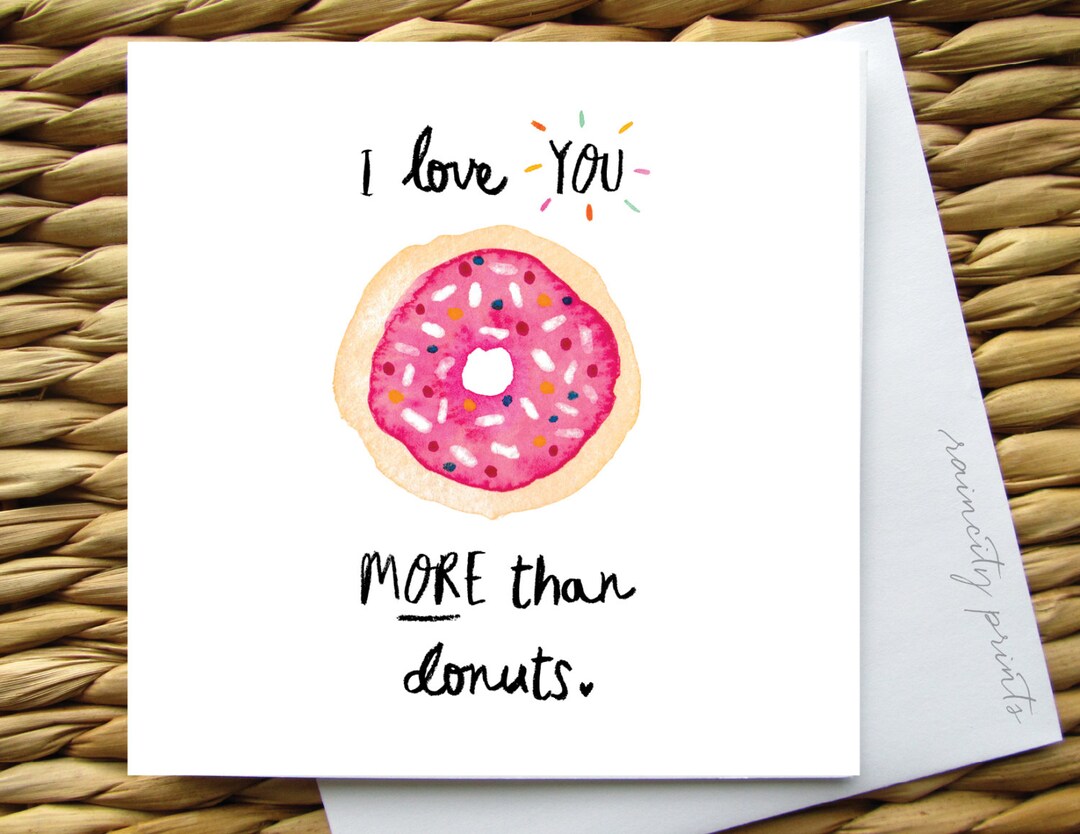 I love YOU
MORE than
donuts.
raincity prints